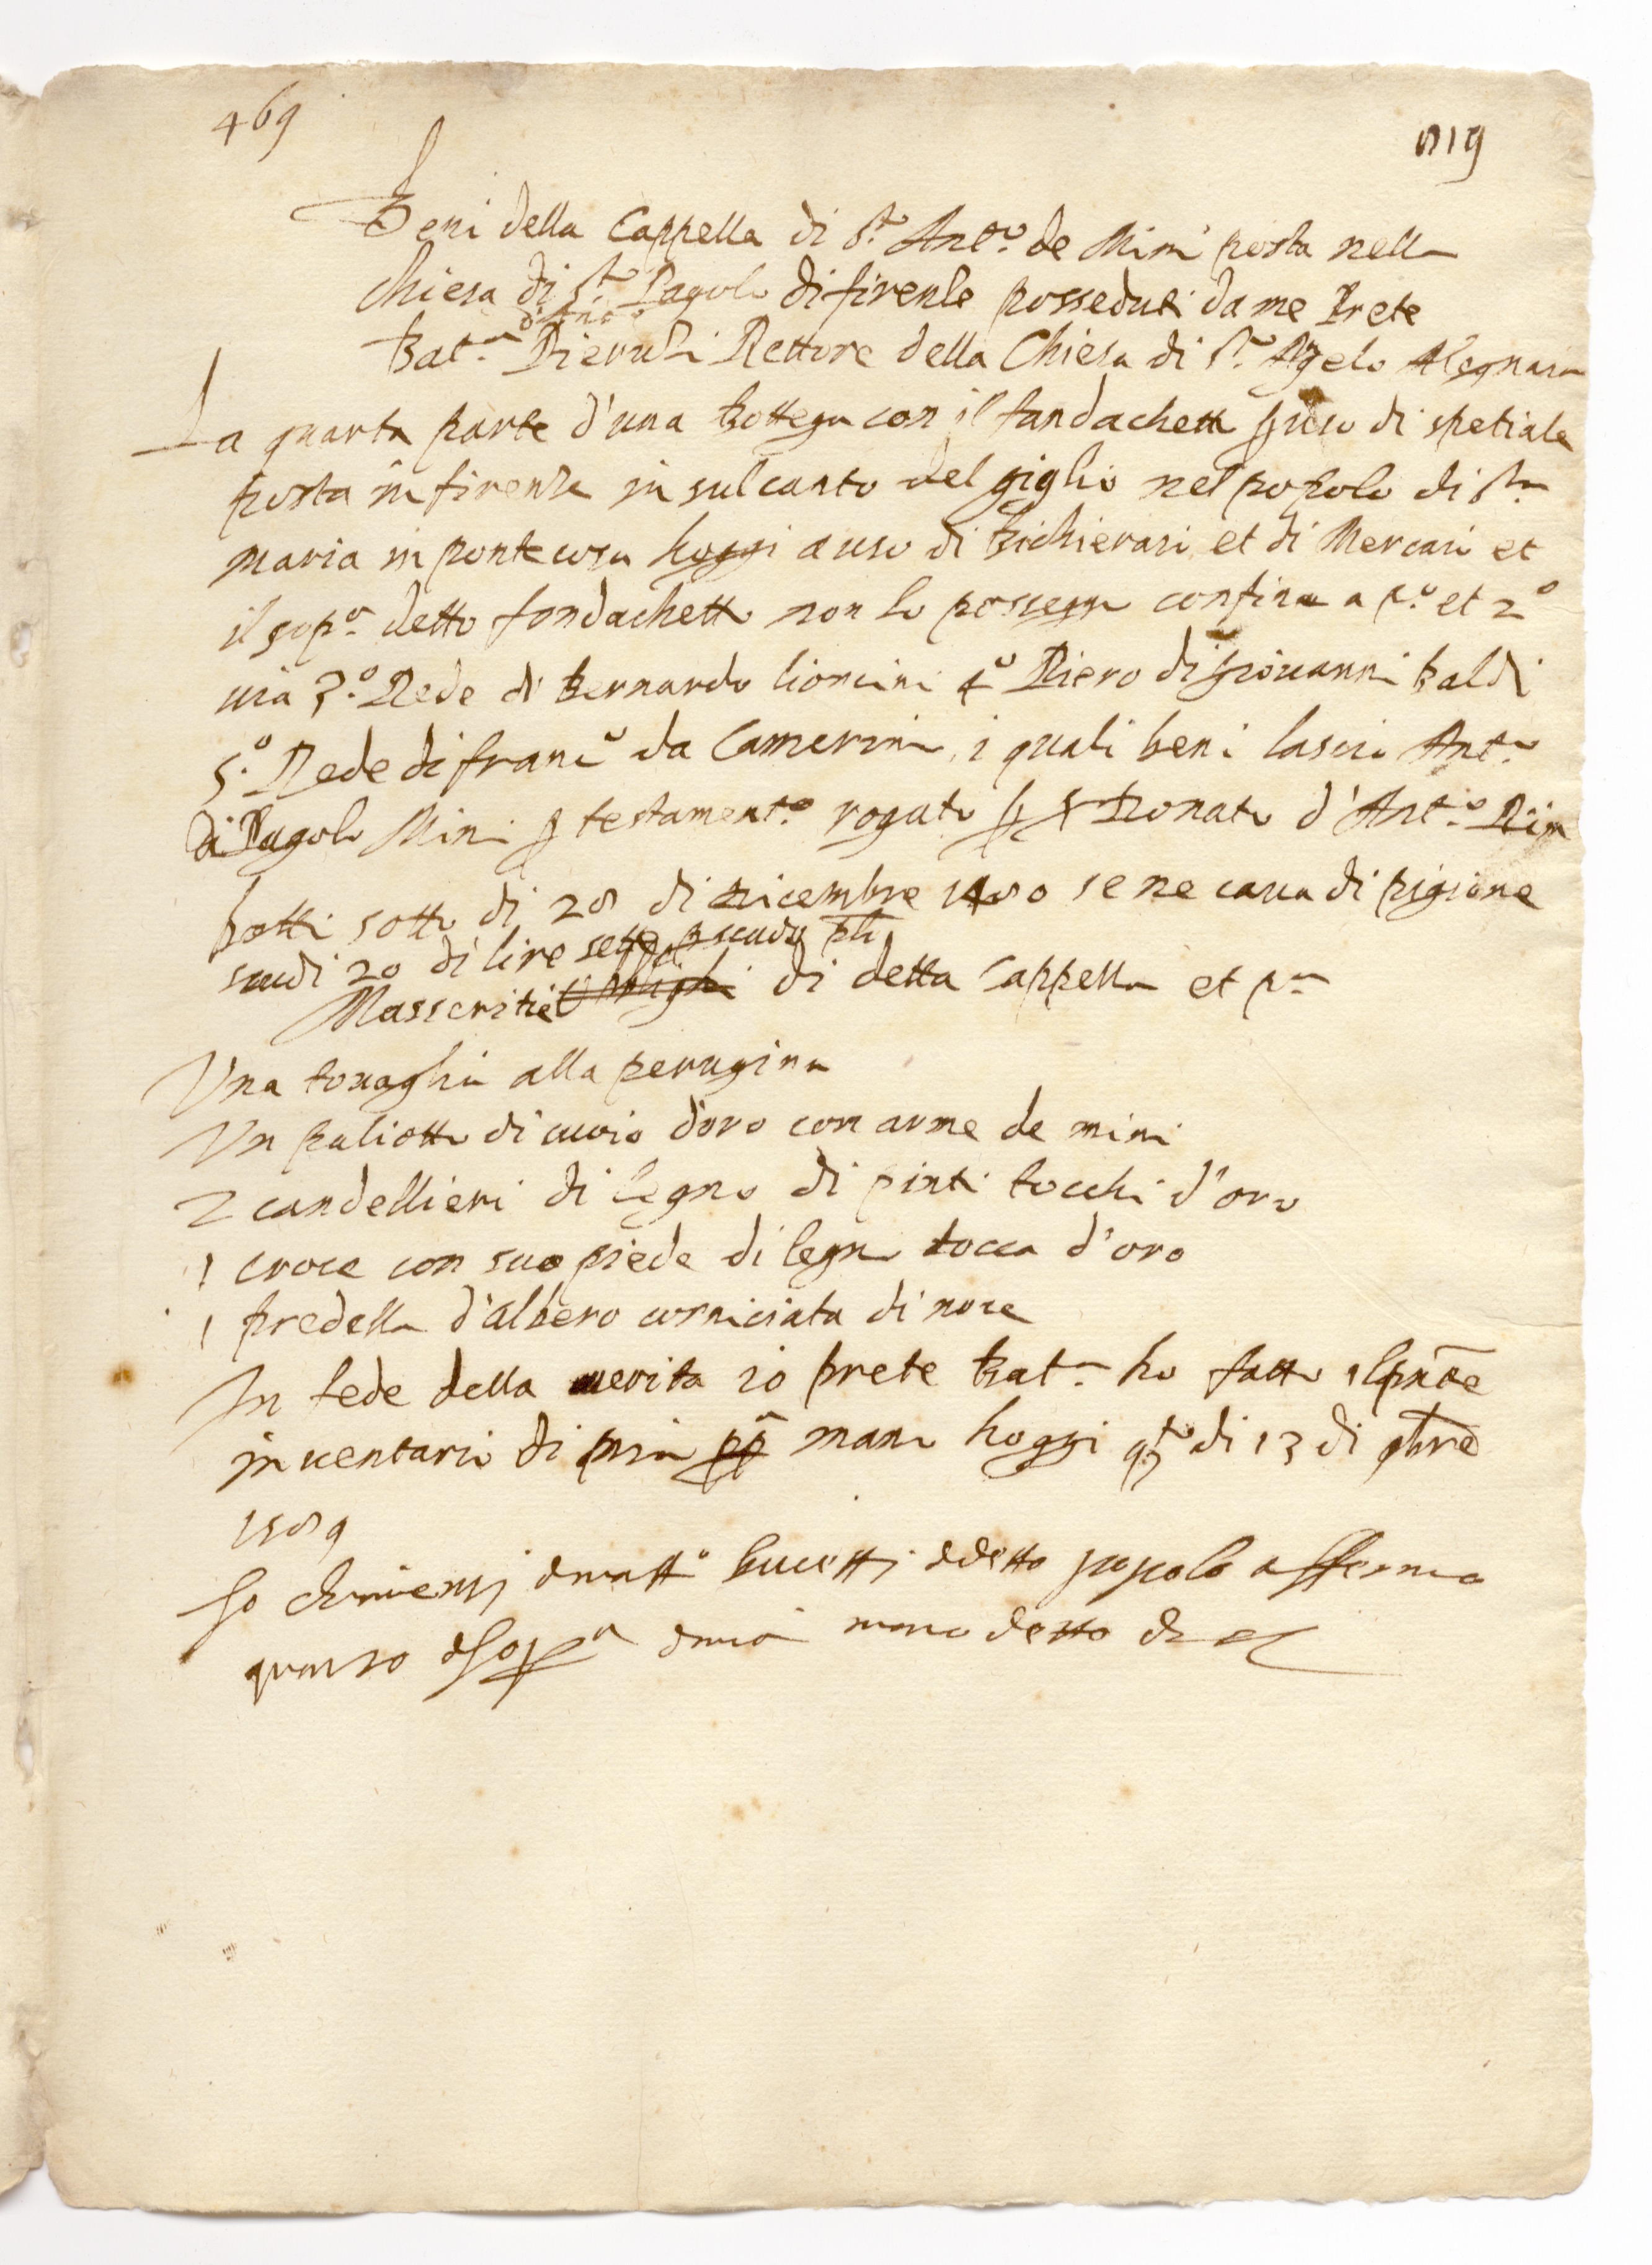 469
819
Beni della Cappella di S.to Ant.o de Mini posta nella
chiesa di S.to Pagolo di firenze posseduti da me Prete
d'Ant.o
Bat.a Pieruzi Rettore della Chiesa di S.to Agelo Alegnaia
La quarta parte d'una bottega con il fandachetto p uso di spetiale
posta in firenze in sul canto del giglio nel popolo di S.ta
maria in ponte cosu hoggi a uso di bichierari et di Mercari et
il sop.a detto fondachetto non lo possegu confina a p.o et 2o
via 3.o Rede di Bernardo Cioncini 4o Piero di giovanni Baldi
5.o Rede di franc.o da Camerini i quali beni lascio Ant.o
di Pagolo Mini p testament.o rogato p S Donato d'Ant.o Rim
botti sotto di 28 di Dicembre 1480 se ne cava di pigione
scudi 20 di lire sette p scudo
Masseritie di detta Cappella et p.a
Una tovaglia alla perugina
Un paliotto di cuoio d'oro con arme de mini
2 candellieri di legno di pinti tocchi d'oro
1 croce con suo piede di legno tocca d'oro
1 predella d'albero corniciata di noce
In fede della verita io prete Bat.a ho fatto il pnte
inventario di mia pp mano hoggi q.to di 13 di 9bre
1589
Io di popolo affermo
quanto di sop.a mano detto di